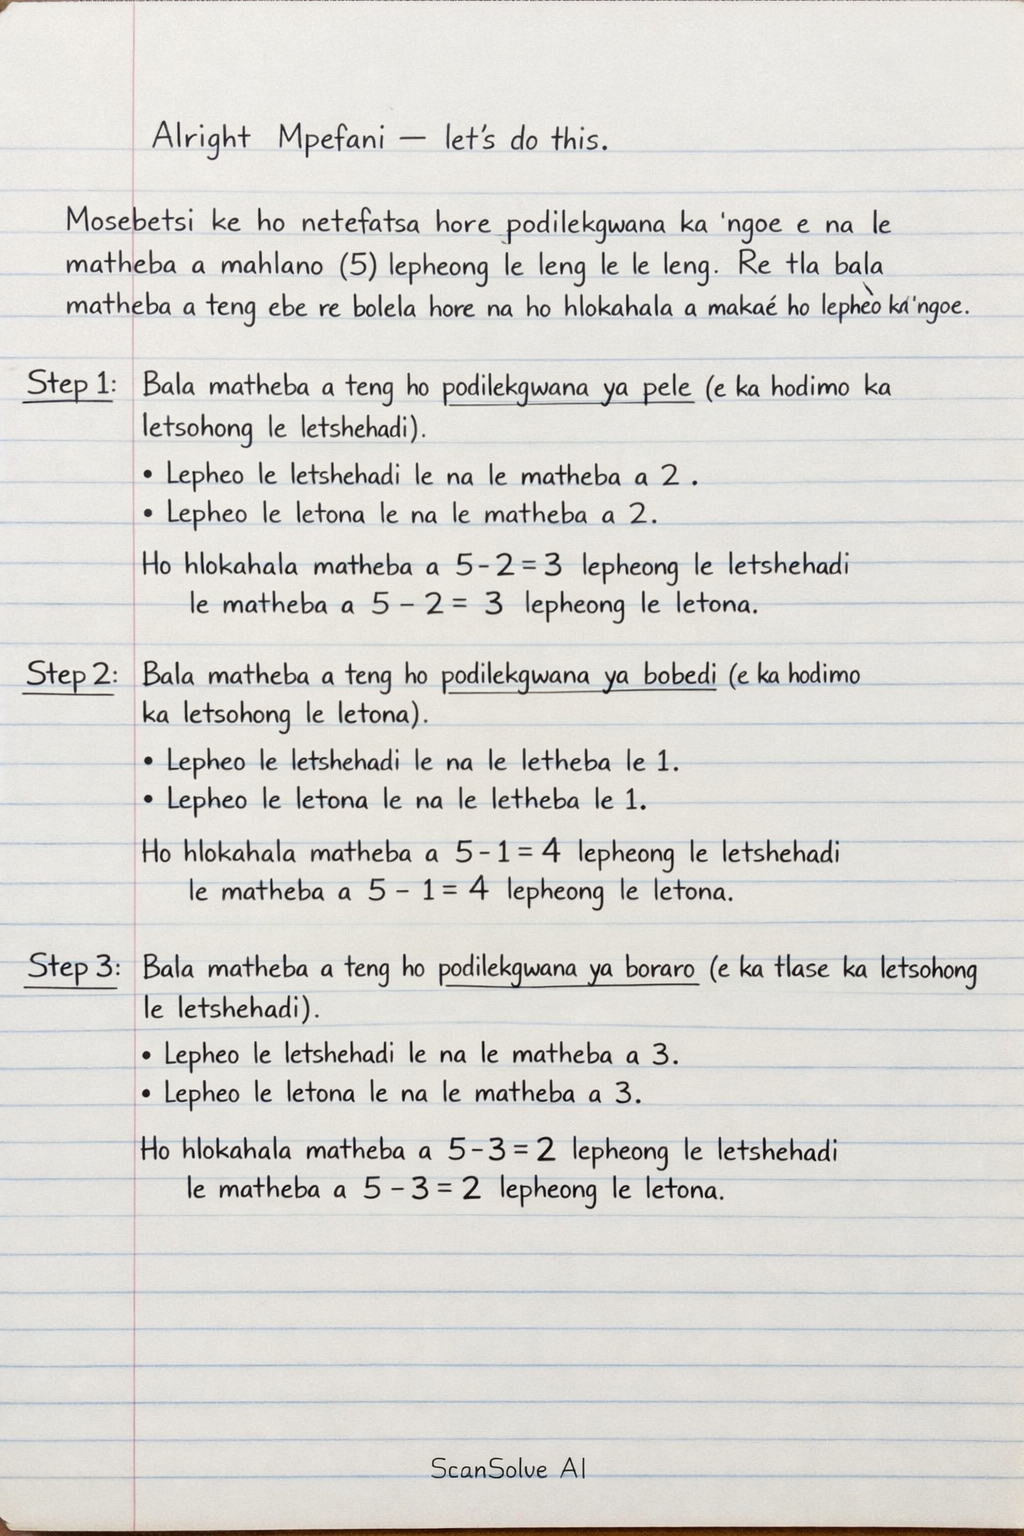 Alright Mpefani — let's do this.
Mosebetsi ke ho netefatsa hore podilekgwana ka 'ngoe e na le
matheba a mahlano (5) lepheong le leng le le leng. Re tla bala
matheba a teng ebe re bolela hore na ho hlokahala a makaé ho lephèo ka 'ngoe.
Step 1: Bala matheba a teng ho podilekgwana ya pele (e ka hodimo ka
letsohong le letshehadi).
• Lepheo le letshehadi le na le matheba a 2.
• Lepheo le letona le na le matheba a 2.
Ho hlokahala matheba a 5-2=3 lepheong le letshehadi
le matheba a 5 - 2 = 3 lepheong le letona.
Step 2: Bala matheba a teng ho podilekgwana ya bobedi (e ka hodimo
ka letsohong le letona).
• Lepheo le letshehadi le na le letheba le 1.
• Lepheo le letona le na le letheba le 1.
Ho hlokahala matheba a 5-1=4 lepheong le letshehadi
le matheba a 5 - 1 = 4 lepheong le letona.
Step 3: Bala matheba a teng ho podilekgwana ya boraro (e ka tlase ka letsohong
le letshehadi).
• Lepheo le letshehadi le na le matheba a 3.
• Lepheo le letona le na le matheba a 3.
Ho hlokahala matheba a 5-3=2 lepheong le letshehadi
le matheba a 5 - 3 = 2 lepheong le letona.
ScanSolve AI